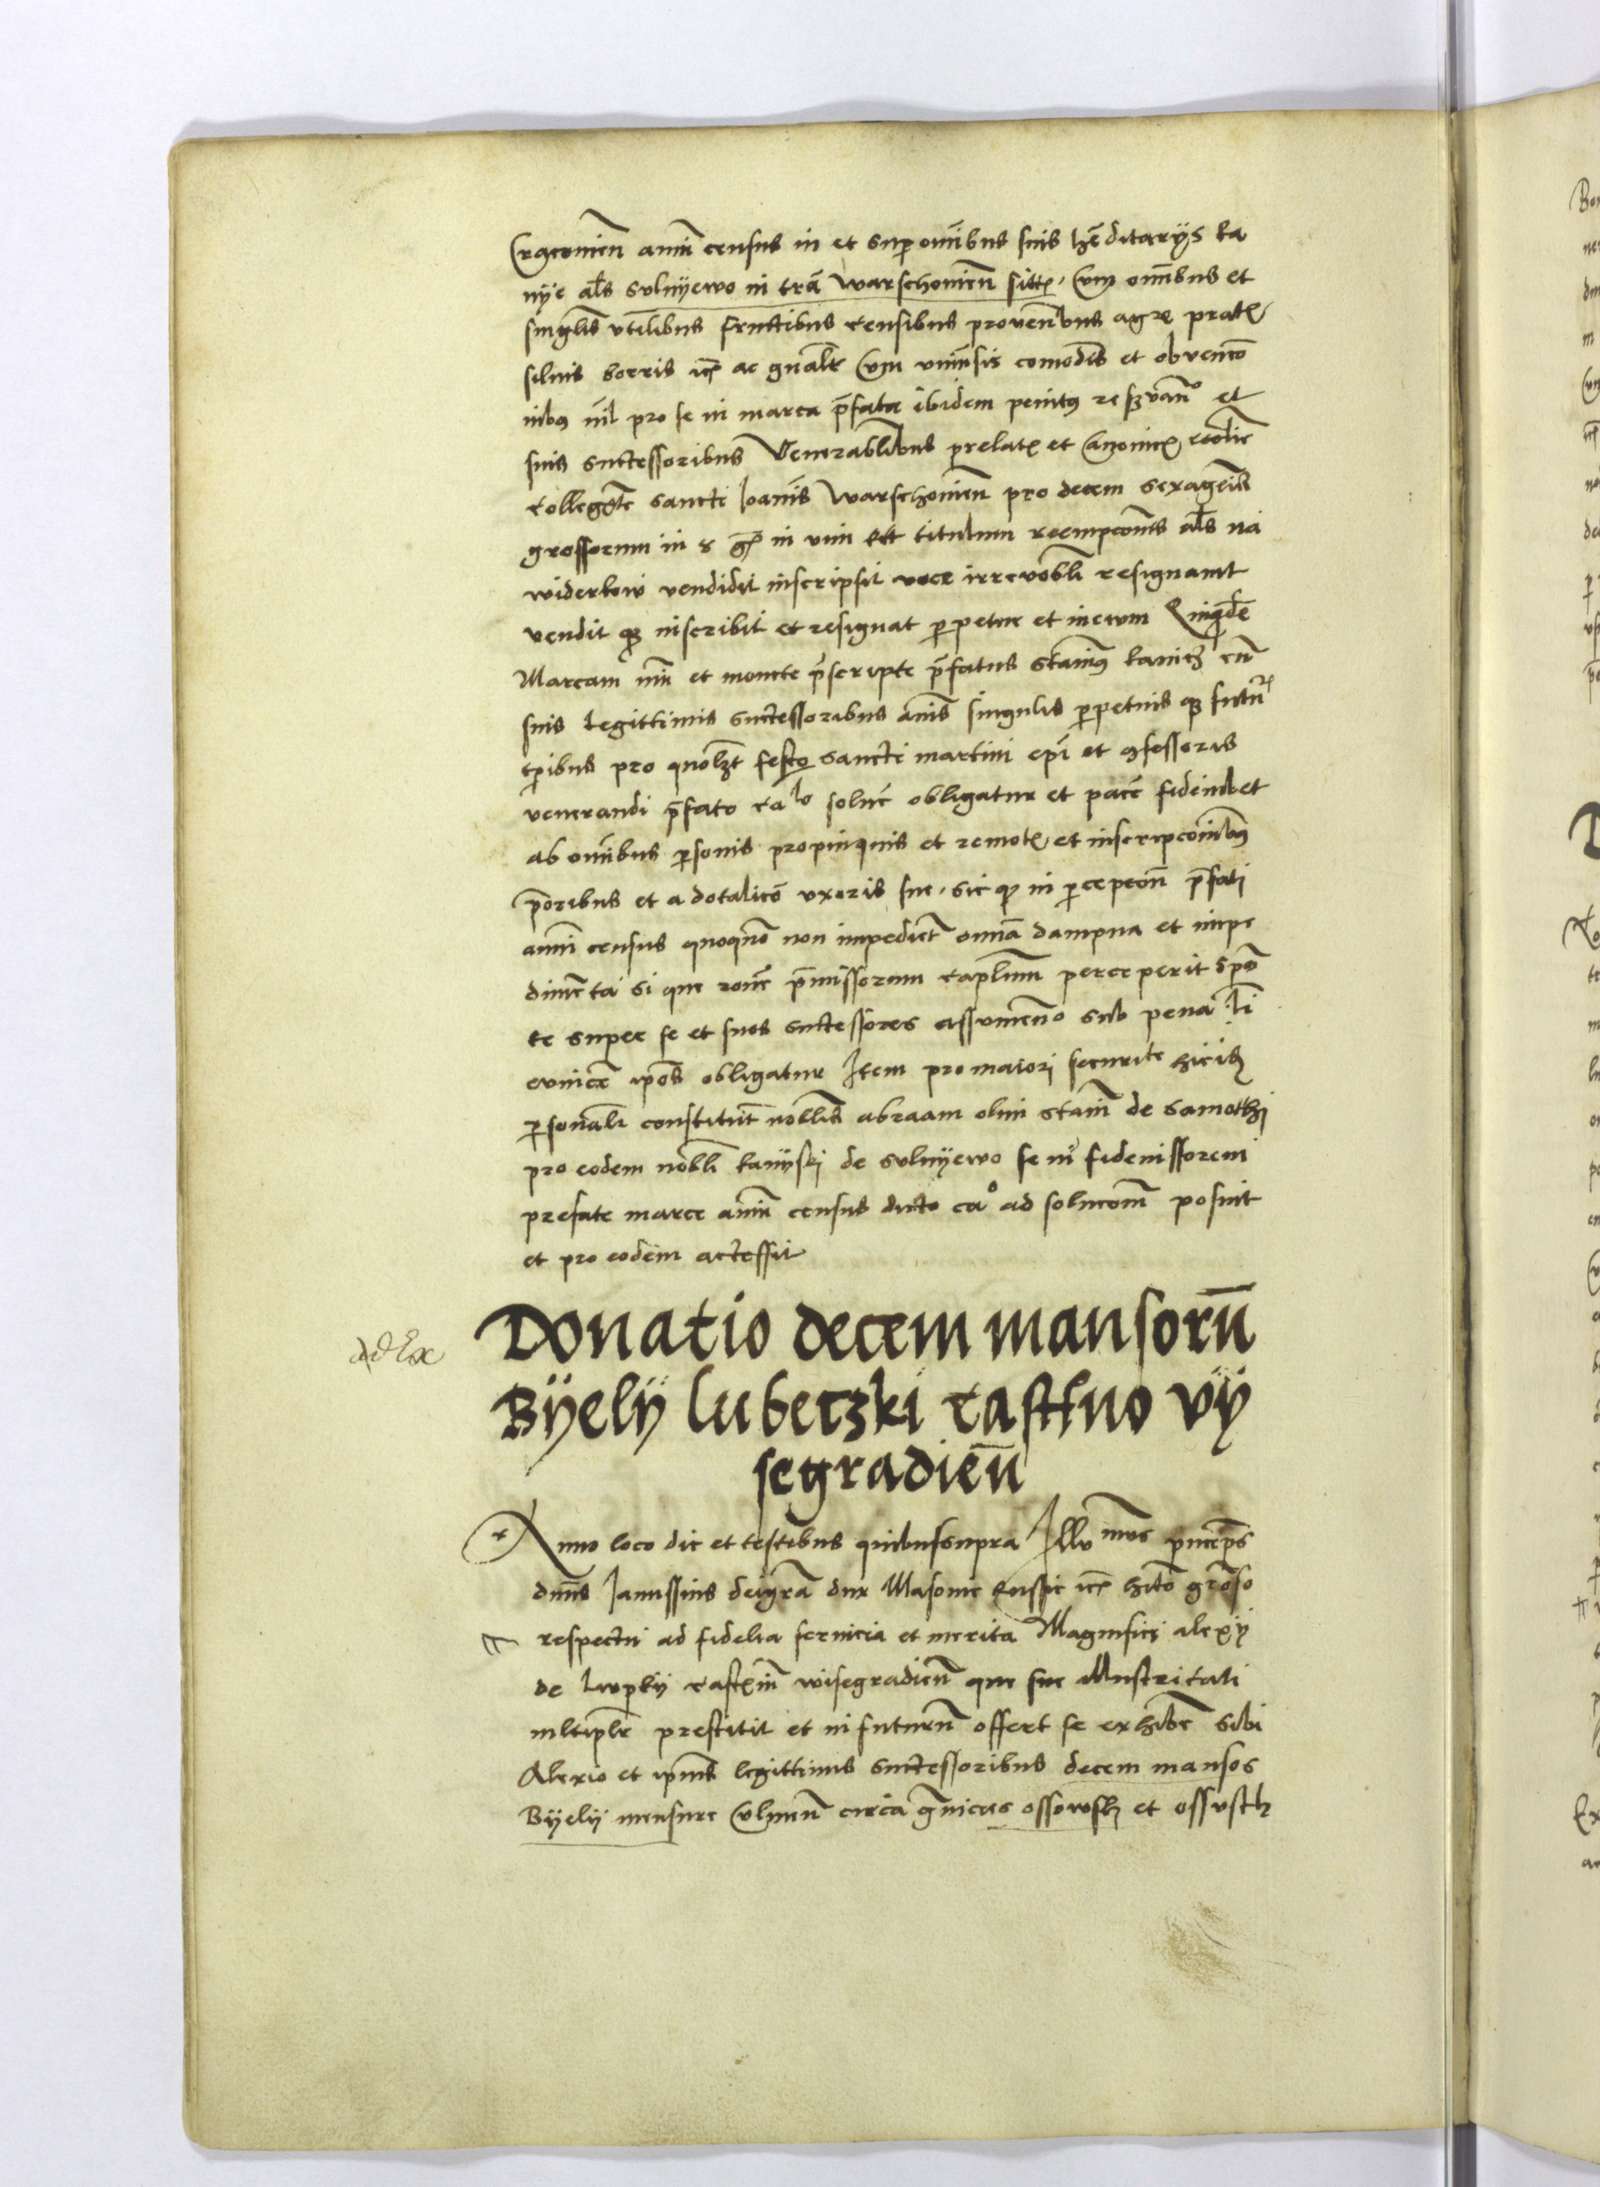 Cracovien annui census in et super omnibus suis hereditarys ka
nye als sulnyewo in tra Warschovien sitt Cum omnibus et
singlis utilibus fructibus censibus provenibus agr prat
silvis borris ac gnalr cum universis comodis et obvenco
nibus nil pro se in marca pfata ibidem penitus reservan et
suis successoribus Venerablibus prelat et Canonic
Collegate sancti Joanis Warschovien pro decem sexagenis
grossorum in in vim titulum reempconis als na
widerkow vendidit inscripsit voce irrevobli resignavit
vendit que inscribit et resignat perpetue et in ewm Quiqde
Marcam nui et monete pscripte pfatus Stanis
suis legittimis successoribus anis singulis perpetuis que futur
tpibus pro quolbt festo sancti martini epi et confessoris
venerandi pfato calo solve obligatur et pace fideiubet
ab omibus personis propinquis et remot et inscripconibus
poribus et a dotalico uxoris sue sic que in percepcon pfati
anni census quoquo non impediet omia dampna et impe
dimeta si que rone pmissorum caplum perceperit spo
te super se et suos successores assumendo sub pena li
obligatur Item pro maiori securite
personali constitut noblis abraam olim Stani de samothi
pro eodem nobli kanyski de sulnyewo se fideiussorem
prefate marce annui census dicto ca ad solucom posuit
et pro eodem accessit
Ad Ex
Donatio decem mansoru
Byely lubeczki castlno vy
segradien
Anno loco die et testibus quibus supra Illumus princeps
dnus Janussius dei gra dux Masovie Russie hito groso
respectu ad fidelia servicia et merita Magnifici alexy
de lwpky castlni wisegradien que sue Illustritati
mltiplr prestitit et in futuru offert se exhibe sibi
Alexio et ipius legittimis successoribus decem mansos
Byely mensure Culmen circa gnicies ossowsk et ossvsth